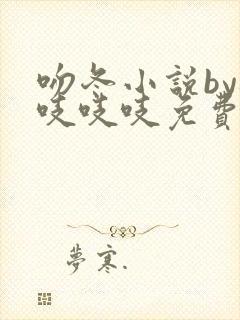 吻冬小說by
吱吱吱免費
夢寒.